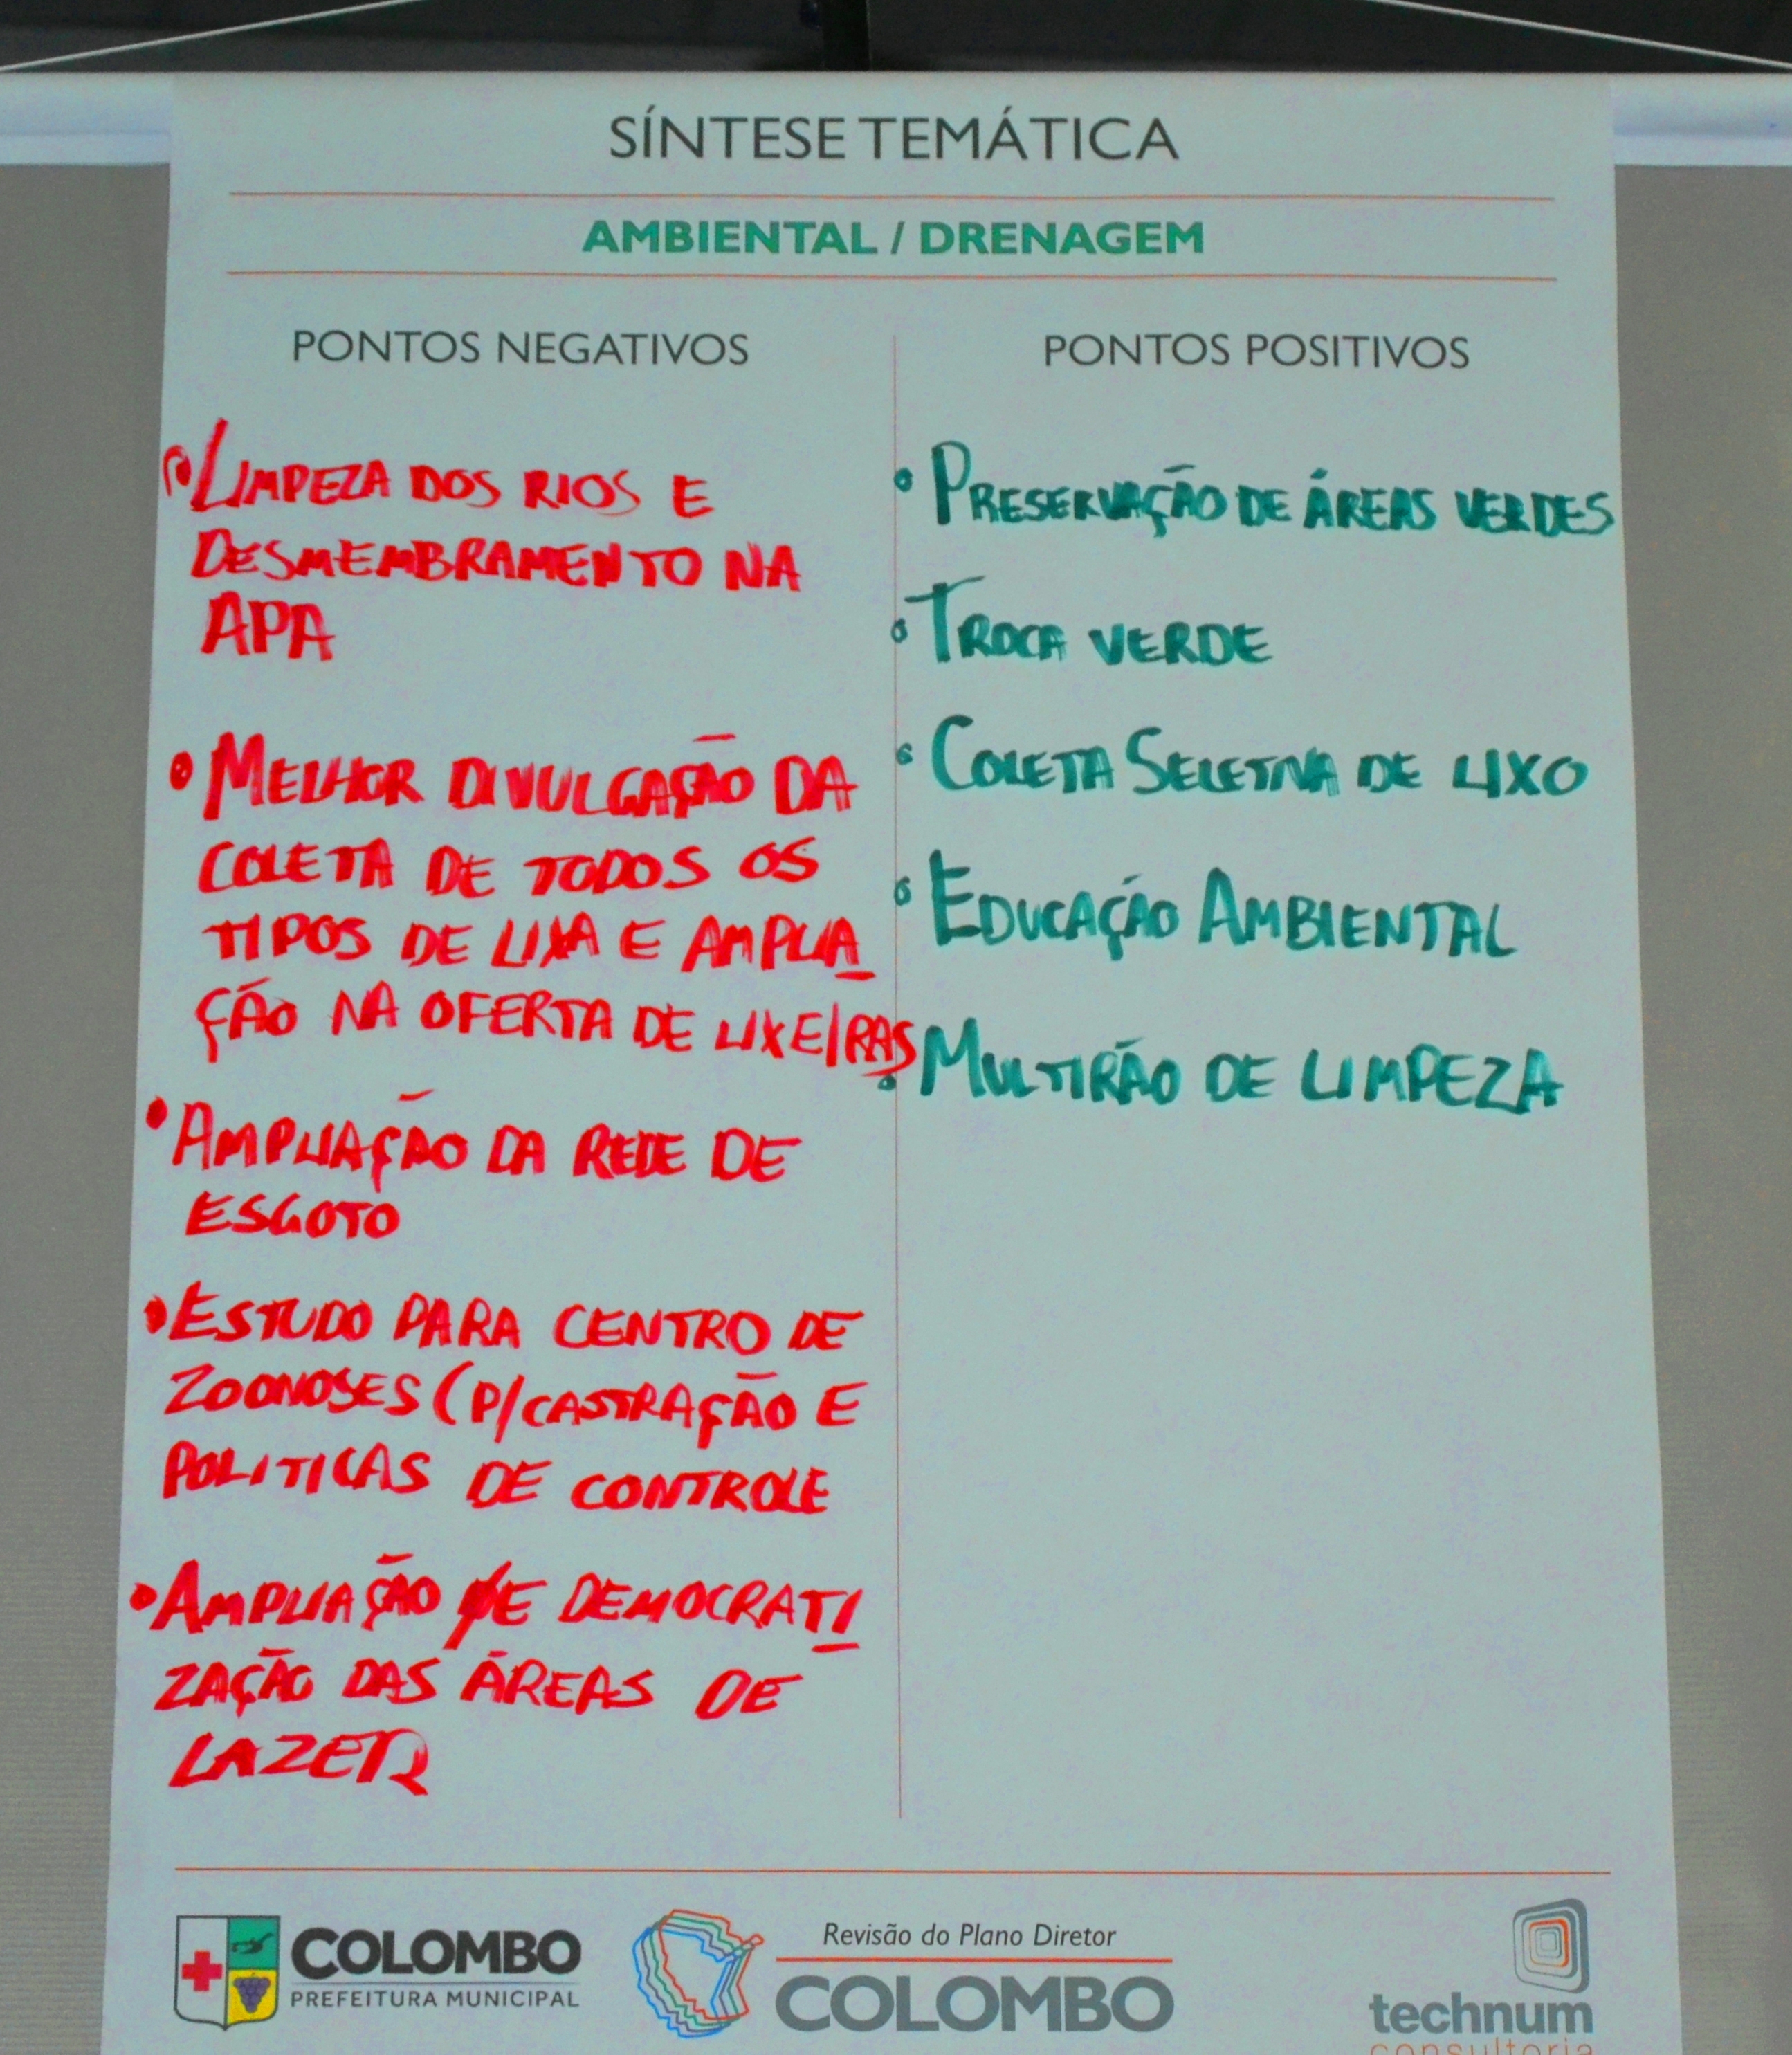 SÍNTESE TEMÁTICA
AMBIENTAL / DRENAGEM
PONTOS NEGATIVOS
• LIMPEZA DOS RIOS E
DESMEMBRAMENTO NA
APA
• MELHOR DIVULGAÇÃO DA
COLETA DE TODOS OS
TIPOS DE LIXA E AMPLIA
ÇÃO NA OFERTA DE LIXEIRAS
• AMPLIAÇÃO DA REDE DE
ESGOTO
• ESTUDO PARA CENTRO DE
ZOONOSES (P/CASTRAÇÃO E
POLITICAS DE CONTROLE
• AMPLIAÇÃO E DEMOCRATI
ZAÇÃO DAS ÁREAS DE
LAZER
PONTOS POSITIVOS
• PRESERVAÇÃO DE ÁREAS VERDES
• TROCA VERDE
• COLETA SELETIVA DE LIXO
• EDUCAÇÃO AMBIENTAL
• MULTIRÃO DE LIMPEZA
COLOMBO
PREFEITURA MUNICIPAL
Revisão do Plano Diretor
COLOMBO
technum
consultoria